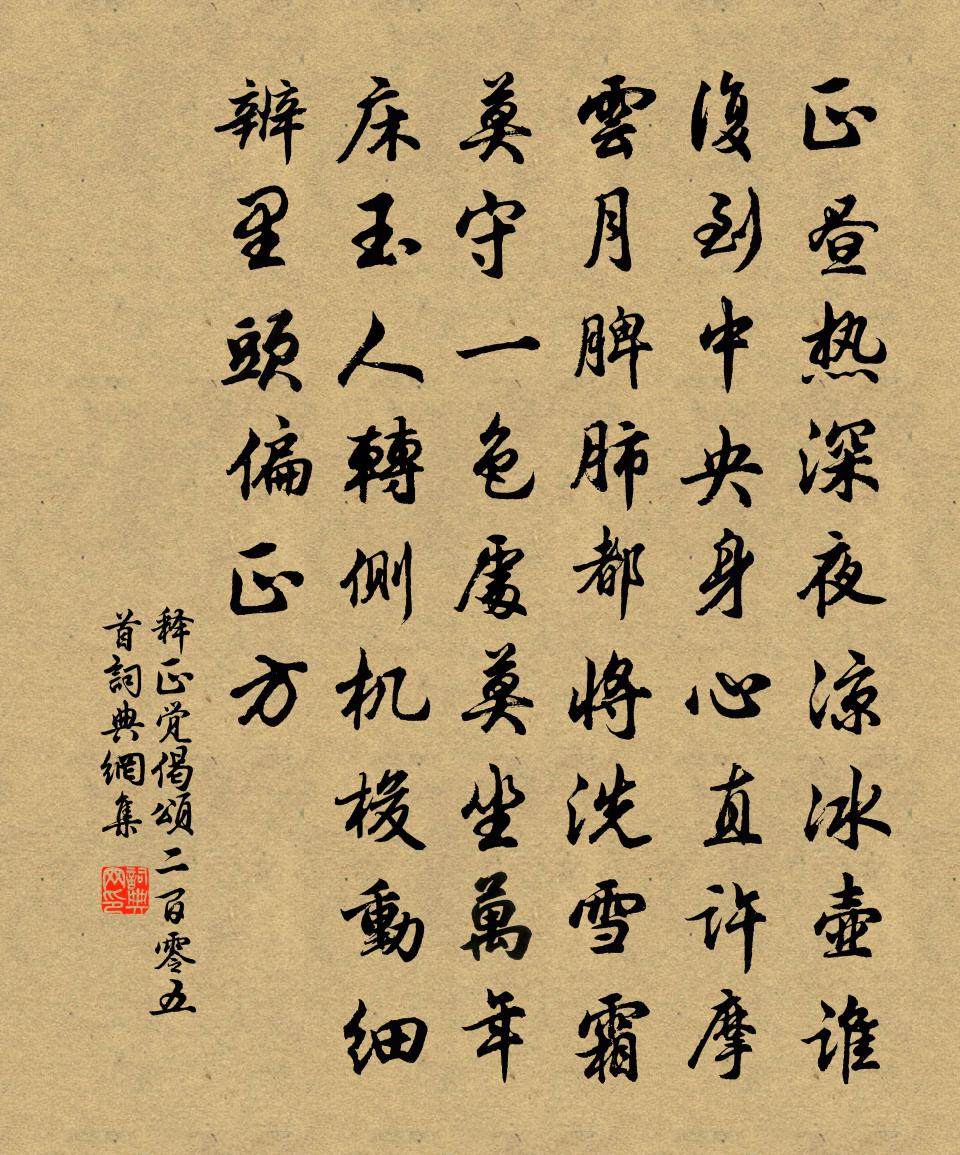 正昼热深夜凉冰壶谁
復到中央身心直许摩
雲月脾肺都将洗雪霜
莫守一色處莫坐萬年
床玉人轉側机梭動细
辨里頭偏正方
释正觉偈頌二百零五
首詞典網集
詞典网印